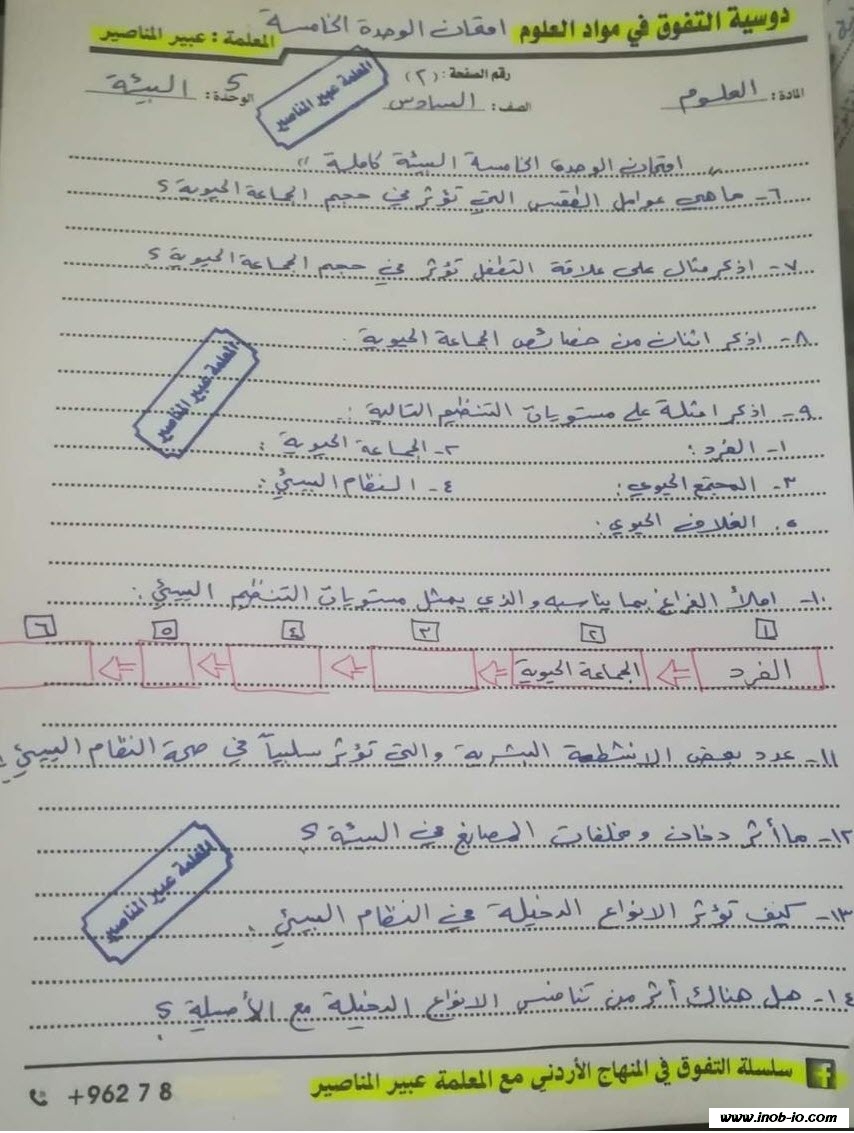 دوسية التفوق في مواد العلوم امتحان الوحدة الخامسة المعلمة : عبير المناصير
المادة : العلوم رقم الصفحة : (٢) الصف : السادس الوحدة : 5 البيئة
المعلمة عبير المناصير
" امتحان الوحدة الخامسة البيئة كاملة "
٦- ما هي عوامل الطقس التي تؤثر في حجم الجماعة الحيوية ؟
٧- اذكر مثال على علاقة التطفل تؤثر في حجم الجماعة الحيوية ؟
٨- اذكر اثنان من خصائص الجماعة الحيوية .
المعلمة عبير المناصير
٩- اذكر امثلة على مستويات التنظيم التالية :
١- الفرد : ٢- الجماعة الحيوية :
٣- المجتمع الحيوي : ٤- النظام البيئي :
٥. الغلاف الحيوي :
١٠- املأ الفراغ بما يناسبه والذي يمثل مستويات التنظيم البيئي :
١ ٢ ٣ ٤ ٥ ٦
الفرد الجماعة الحيوية
١١- عدد بعض الانشطة البشرية والتي تؤثر سلبياً في صحة النظام البيئي
١٢- ما أثر دخان ومخلفات المصانع في البيئة ؟
المعلمة عبير المناصير
١٣- كيف تؤثر الانواع الدخيلة في النظام البيئي .
١٤- هل هناك أثر من تنافس الانواع الدخيلة مع الأصلية ؟
سلسلة التفوق في المنهاج الأردني مع المعلمة عبير المناصير
+962 7 8
www.inob-io.com